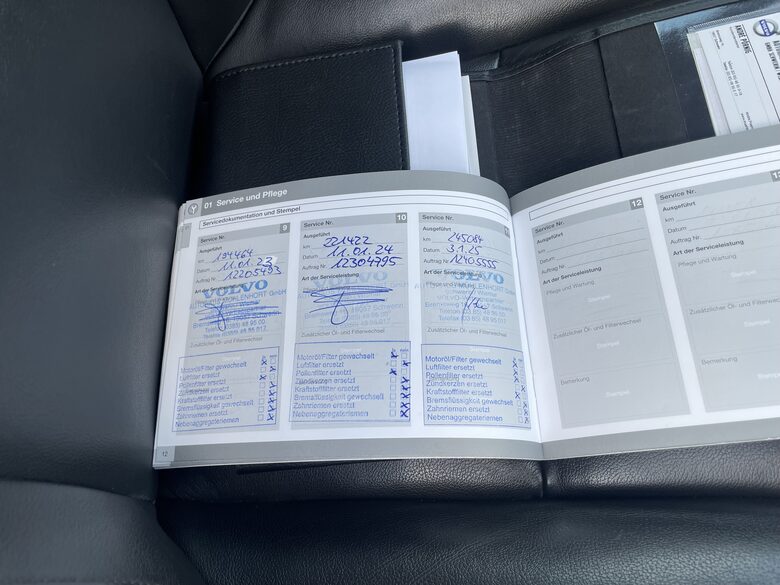 ANDRE PÖRNIG
VOLVO
01 Service und Pflege
Servicedokumentation und Stempel
Service Nr. 9
Ausgeführt
km 194464
Datum 11.01.23
Auftrag Nr. 12205493
Art der Serviceleistung
VOLVO
Telefon (0385) 48 95 00
Zusätzlicher Öl- und Filterwechsel
Motoröl/Filter gewechselt
Luftfilter ersetzt
Pollenfilter ersetzt
Zündkerzen ersetzt
Kraftstofffilter ersetzt
Bremsflüssigkeit gewechselt
Zahnriemen ersetzt
Nebenaggregateriemen
12
Service Nr. 10
Ausgeführt
km 221422
Datum 11.01.24
Auftrag Nr. 12304795
Art der Serviceleistung
VOLVO
Zusätzlicher Öl- und Filterwechsel
Motoröl/Filter gewechselt
Luftfilter ersetzt
Pollenfilter ersetzt
Zündkerzen ersetzt
Kraftstofffilter ersetzt
Bremsflüssigkeit gewechselt
Zahnriemen ersetzt
Nebenaggregateriemen
Service Nr.
Ausgeführt
km 245084
Datum 3.1.25
Auftrag Nr. 12405555
Art der Serviceleistung
VOLVO
Telefon (0385) 48 95 00
Zusätzlicher Öl- und Filterwechsel
Motoröl/Filter gewechselt
Luftfilter ersetzt
Pollenfilter ersetzt
Zündkerzen ersetzt
Kraftstofffilter ersetzt
Bremsflüssigkeit gewechselt
Zahnriemen ersetzt
Nebenaggregateriemen
Service Nr. 12
Ausgeführt
km
Datum
Auftrag Nr.
Art der Serviceleistung
Pflege und Wartung
Stempel
Zusätzlicher Öl- und Filterwechsel
Stempel
Bemerkung
Stempel
Service Nr.
Ausgeführt
km
Datum
Auftrag Nr.
Art der Serviceleistung
Pflege und Wartung
Stempel
Zusätzlicher Öl- und Filterwechsel
Stempel
Bemerkung
Stempel